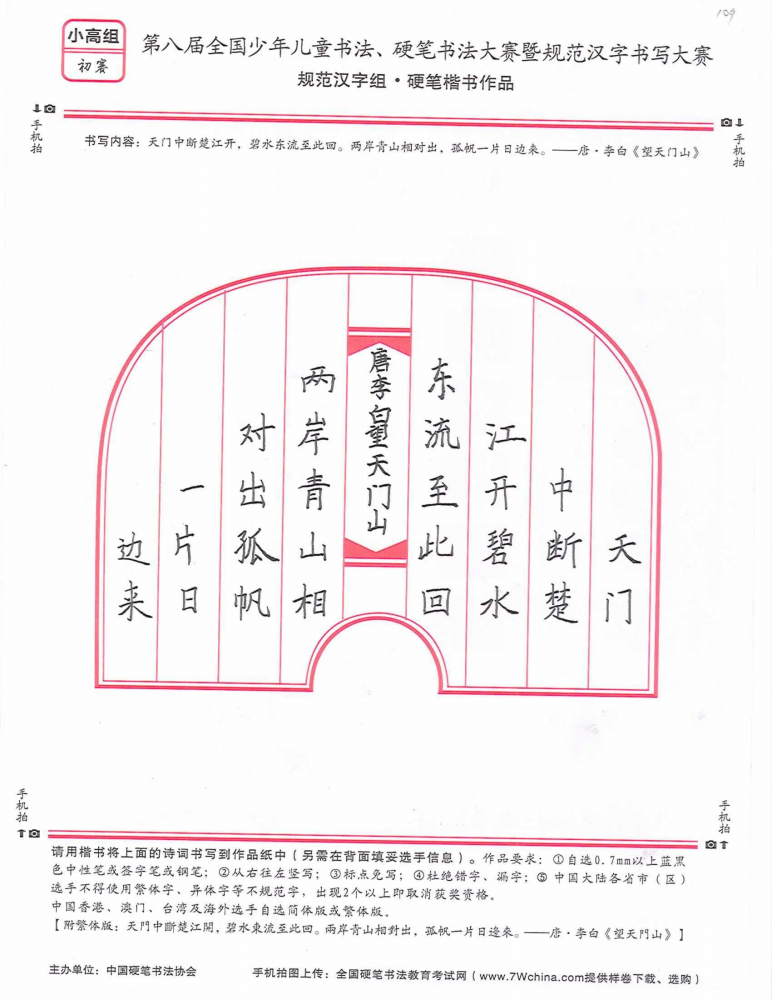 109
小高组
初赛
第八届全国少年儿童书法、硬笔书法大赛暨规范汉字书写大赛
规范汉字组·硬笔楷书作品
手机拍
手机拍
书写内容：天门中断楚江开，碧水东流至此回。两岸青山相对出，孤帆一片日边来。——唐·李白《望天门山》
天门
中断楚
江开碧水
东流至此回
唐李白望天门山
两岸青山相
对出孤帆
一片日
边来
手机拍
手机拍
请用楷书将上面的诗词书写到作品纸中（另需在背面填妥选手信息）。作品要求：①自选0.7mm以上蓝黑
色中性笔或签字笔或钢笔；②从右往左竖写；③标点免写；④杜绝错字、漏字；⑤中国大陆各省市（区）
选手不得使用繁体字、异体字等不规范字，出现2个以上即取消获奖资格。
中国香港、澳门、台湾及海外选手自选简体版或繁体版。
【附繁体版：天門中斷楚江開，碧水東流至此回。兩岸青山相對出，孤帆一片日邊來。——唐·李白《望天門山》】
主办单位：中国硬笔书法协会
手机拍图上传：全国硬笔书法教育考试网（www.7Wchina.com提供样卷下载、选购）